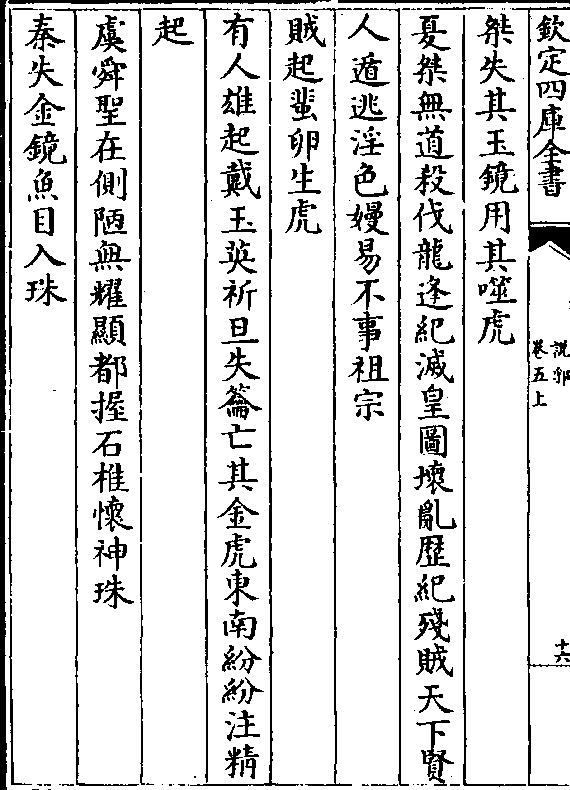 欽定四庫全書
說郛
卷五上
十六
桀失其玉鏡用其噬虎
夏桀無道殺伐龍逢紀滅皇圖壞亂歴紀殘賊天下賢
人遁逃淫色嫚易不事祖宗
賊起蜚卵生虎
有人雄起戴玉英祈旦失籥亡其金虎東南紛紛注精
起
虞舜聖在側陋無耀顯都握石椎懷神珠
秦失金鏡魚目入珠